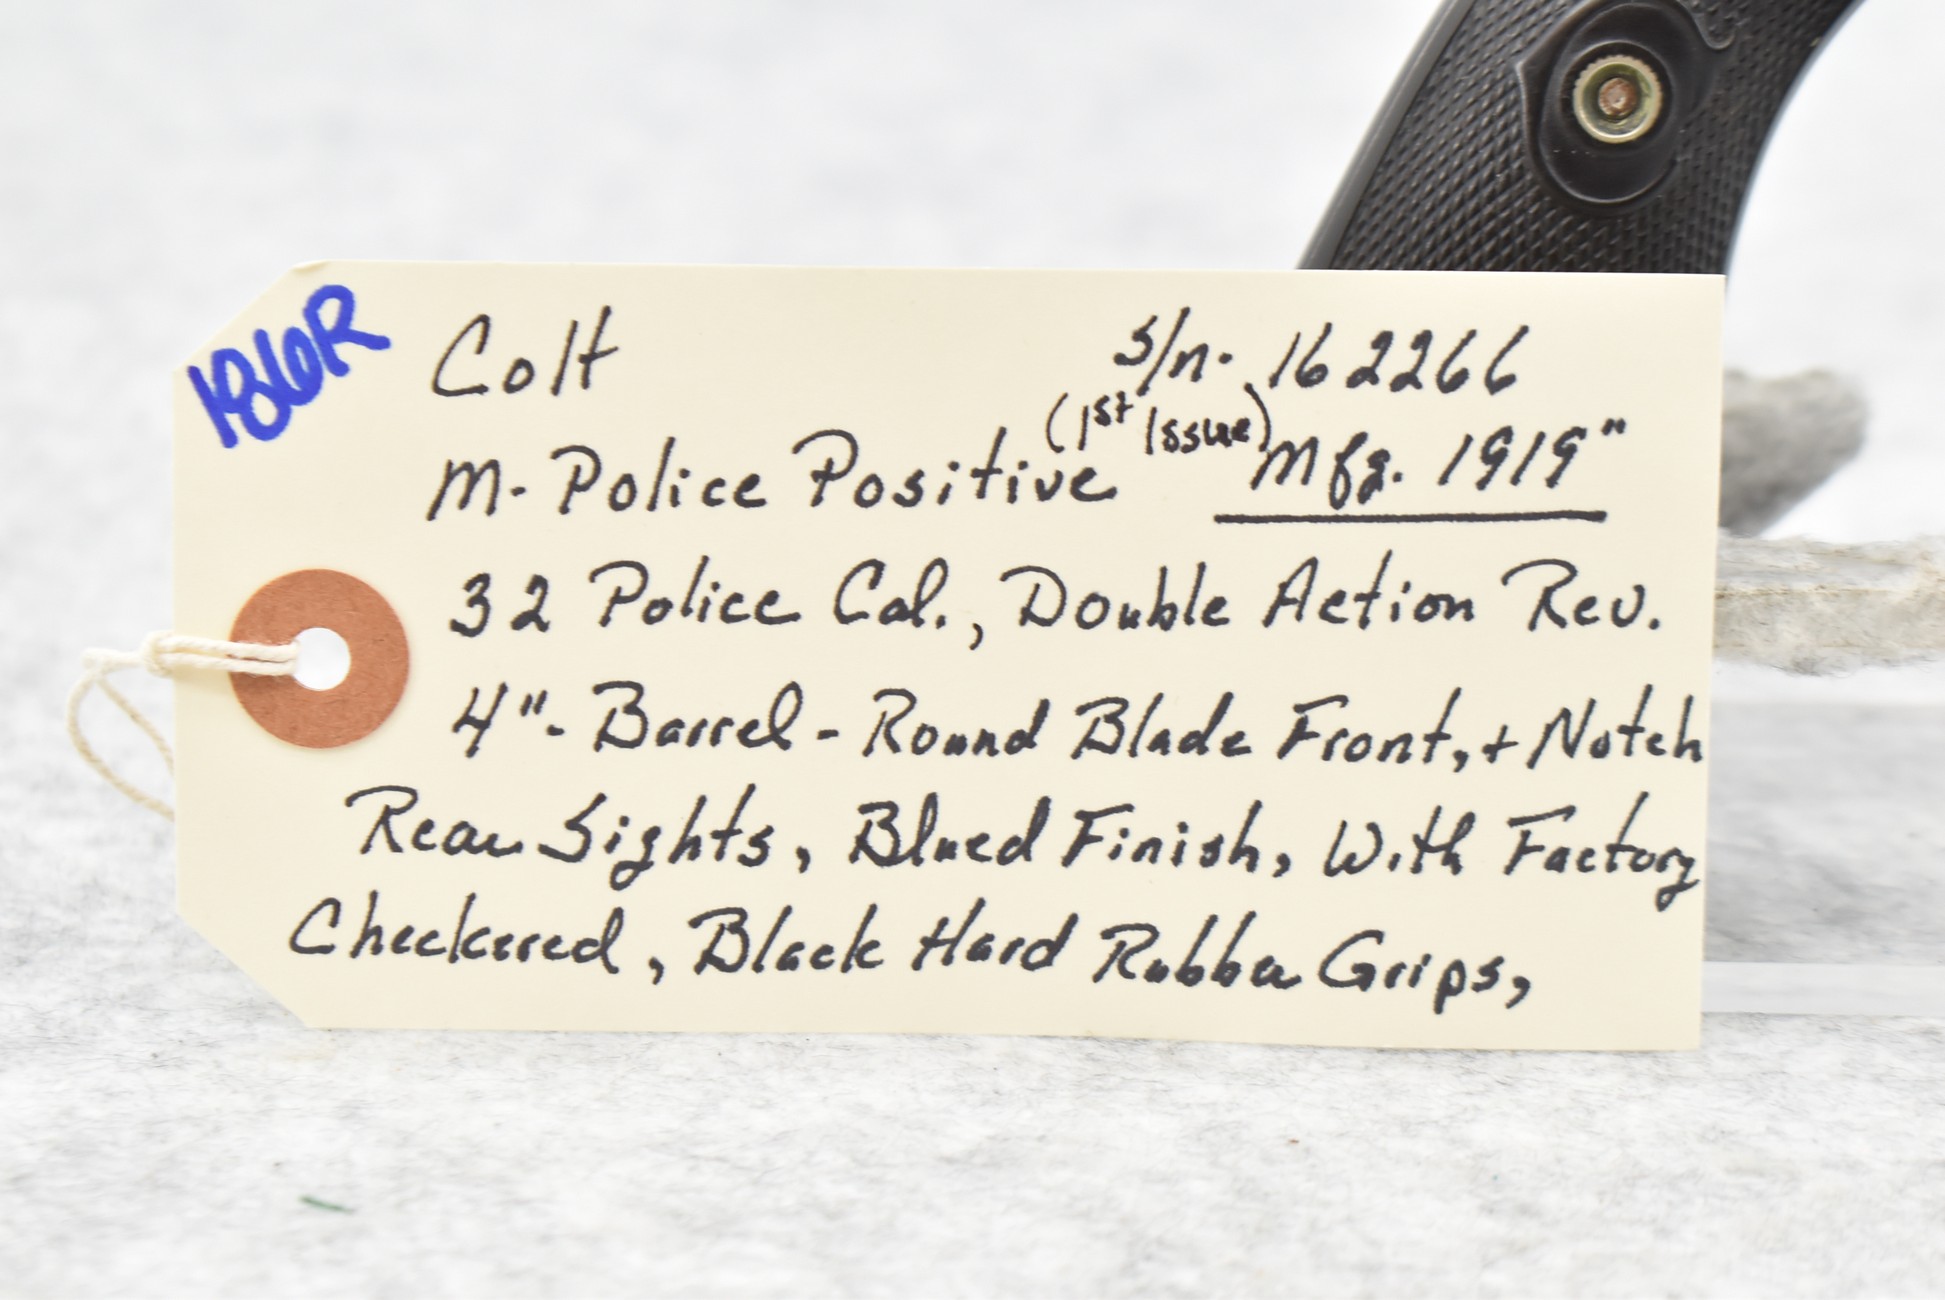 186R
Colt s/n. 162266
M-Police Positive (1st Issue) Mfg. 1919"
32 Police Cal., Double Action Rev.
4"- Barrel - Round Blade Front, + Notch
Rear Sights, Blued Finish, With Factory
Checkered, Black Hard Rubber Grips,